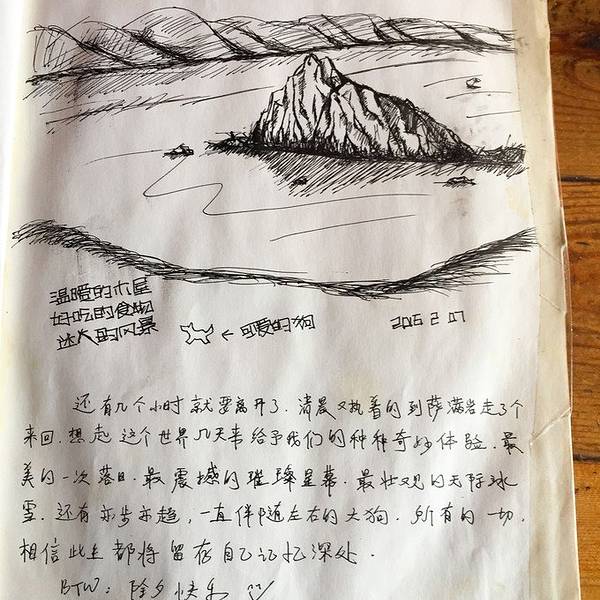 温暖的木屋
好吃的食物
迷人的风暴
← 可爱的狗
2015 2 07
还有几个小时就要离开了．清晨又执着的到萨满岩走了个
来回．想起这个世界几天来给予我们的种种奇妙体验．最
美的一次落日．最震撼的璀璨星幕．最壮观的无际冰
雪．还有亦步亦趋，一直伴随左右的大狗．所有的一切．
相信此生都将留存自己记忆深处．
BTW：除夕快乐